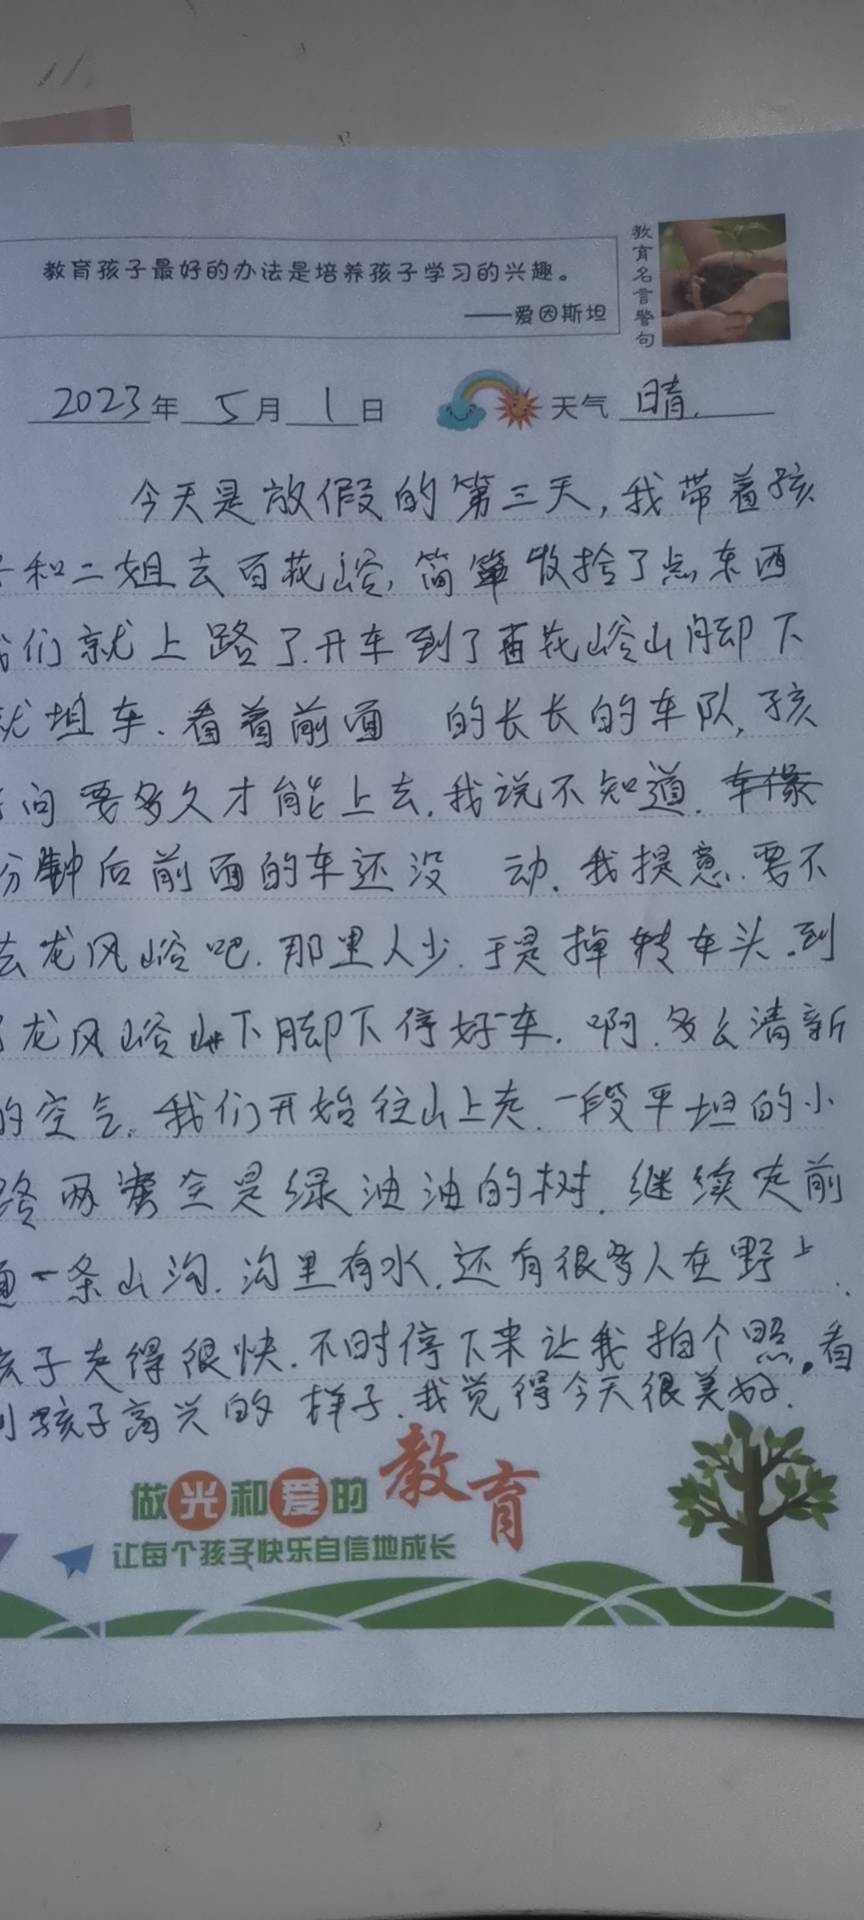 教育孩子最好的办法是培养孩子学习的兴趣。
——爱因斯坦
教育名言警句
2023年 5月 1日 天气 晴.
今天是放假的第三天,我带着孩
子和二姐去百花峪,简单收拾了点东西
我们就上路了.开车到了百花峪山脚下
就坦车.看着前面 的长长的车队,孩
子问要多久才能上去.我说不知道.
分钟后前面的车还没 动.我提意.要不
去龙凤峪吧.那里人少.于是掉转车头.到
了龙风峪下脚下停好车.啊.多么清新
的空气.我们开始往山上走.一段平坦的小
路两旁全是绿油油的树.继续走前
面一条山沟.沟里有水.还有很多人在野上.
孩子走得很快.不时停下来让我拍个照.看
到孩子高兴的样子.我觉得今天很美好.
做光和爱的教育
让每个孩子快乐自信地成长